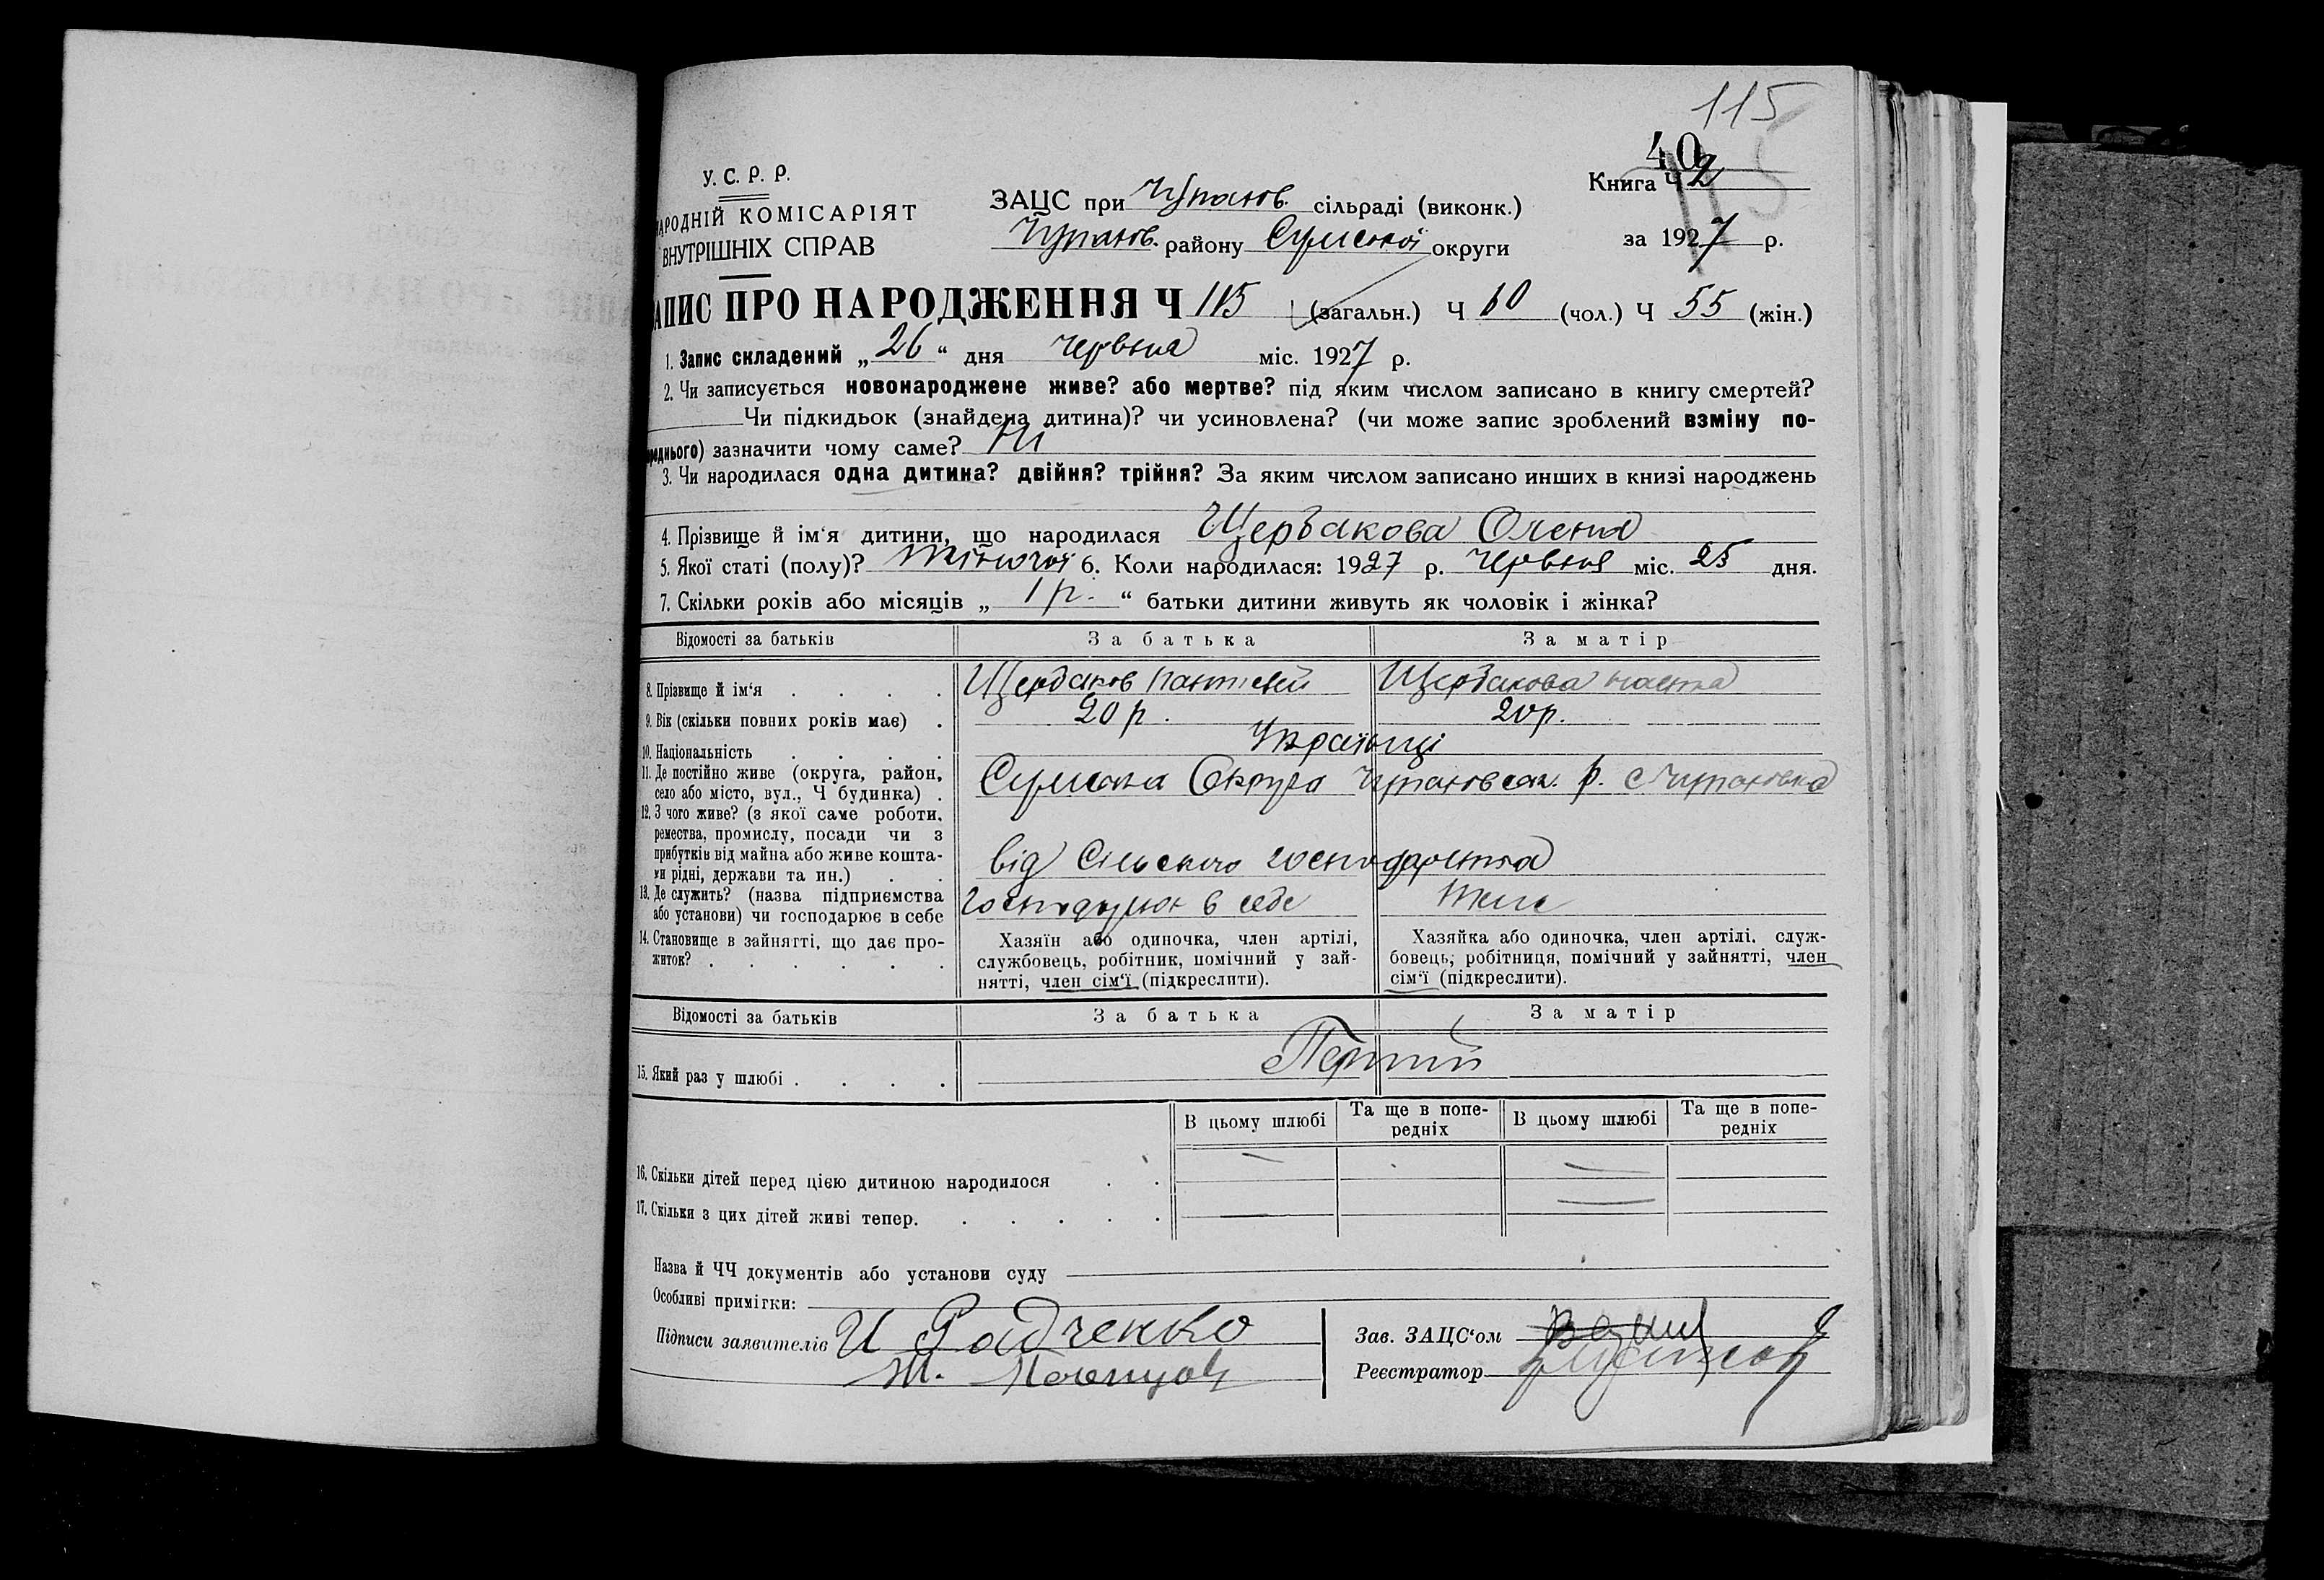 115
40
У. С. Р. Р.
НАРОДНІЙ КОМІСАРІЯТ
ВНУТРІШНІХ СПРАВ
ЗАЦС при сільраді (виконк.)
району Сумської округи
Книга Ч 2
за 1927 р.
ЗАПИС ПРО НАРОДЖЕННЯ Ч 115 (загальн.) Ч 60 (чол.) Ч 55 (жін.)
1. Запис складений „26“ дня червня міс. 1927 р.
2. Чи записується новонароджене живе? або мертве? під яким числом записано в книгу смертей?
Чи підкидьок (знайдена дитина)? чи усиновлена? (чи може запис зроблений взміну по-
реднього) зазначити чому саме? Ні
3. Чи народилася одна дитина? двійня? трійня? За яким числом записано инших в книзі народжень
4. Прізвище й ім‘я дитини, що народилася Щербакова Олена
5. Якої статі (полу)? жіночої 6. Коли народилася: 1927 р. червня міс. 25 дня.
7. Скільки років або місяців „ 1 р. “ батьки дитини живуть як чоловік і жінка?
Відомості за батьків За батька За матір
8. Прізвище й ім‘я . . . . Щербаков Пантелей Щербакова Настя
9. Вік (скільки повних років має) . 20 р. 20 р.
10. Національність . . . . Українці
11. Де постійно живе (округа, район,
село або місто, вул., Ч будинка) . Сумська Округа р. с
12. З чого живе? (з якої саме роботи,
ремества, промислу, посади чи з
прибутків від майна або живе кошта-
ми рідні, держави та ин.) . . від Сільського господарства
13. Де служить? (назва підприємства
або установи) чи господарює в себе Господарює в себе Теж
14. Становище в зайнятті, що дає про-
житок? . . . . . .
Хазяїн або одиночка, член артілі,
службовець, робітник, помічний у зай-
нятті, член сім‘ї (підкреслити).
Хазяйка або одиночка, член артілі, служ-
бовець, робітниця, помічний у зайнятті, член
сім‘ї (підкреслити).
Відомості за батьків За батька За матір
15. Який раз у шлюбі . . . . Перший
В цьому шлюбі Та ще в попе-
редніх В цьому шлюбі Та ще в попе-
редніх
16. Скільки дітей перед цією дитиною народилося . . — —
17. Скільки з цих дітей живі тепер. . . . . . — —
Назва й ЧЧ документів або установи суду
Особливі примітки:
Підписи заявителів И Радченко
Зав. ЗАЦС‘ом
Реєстратор